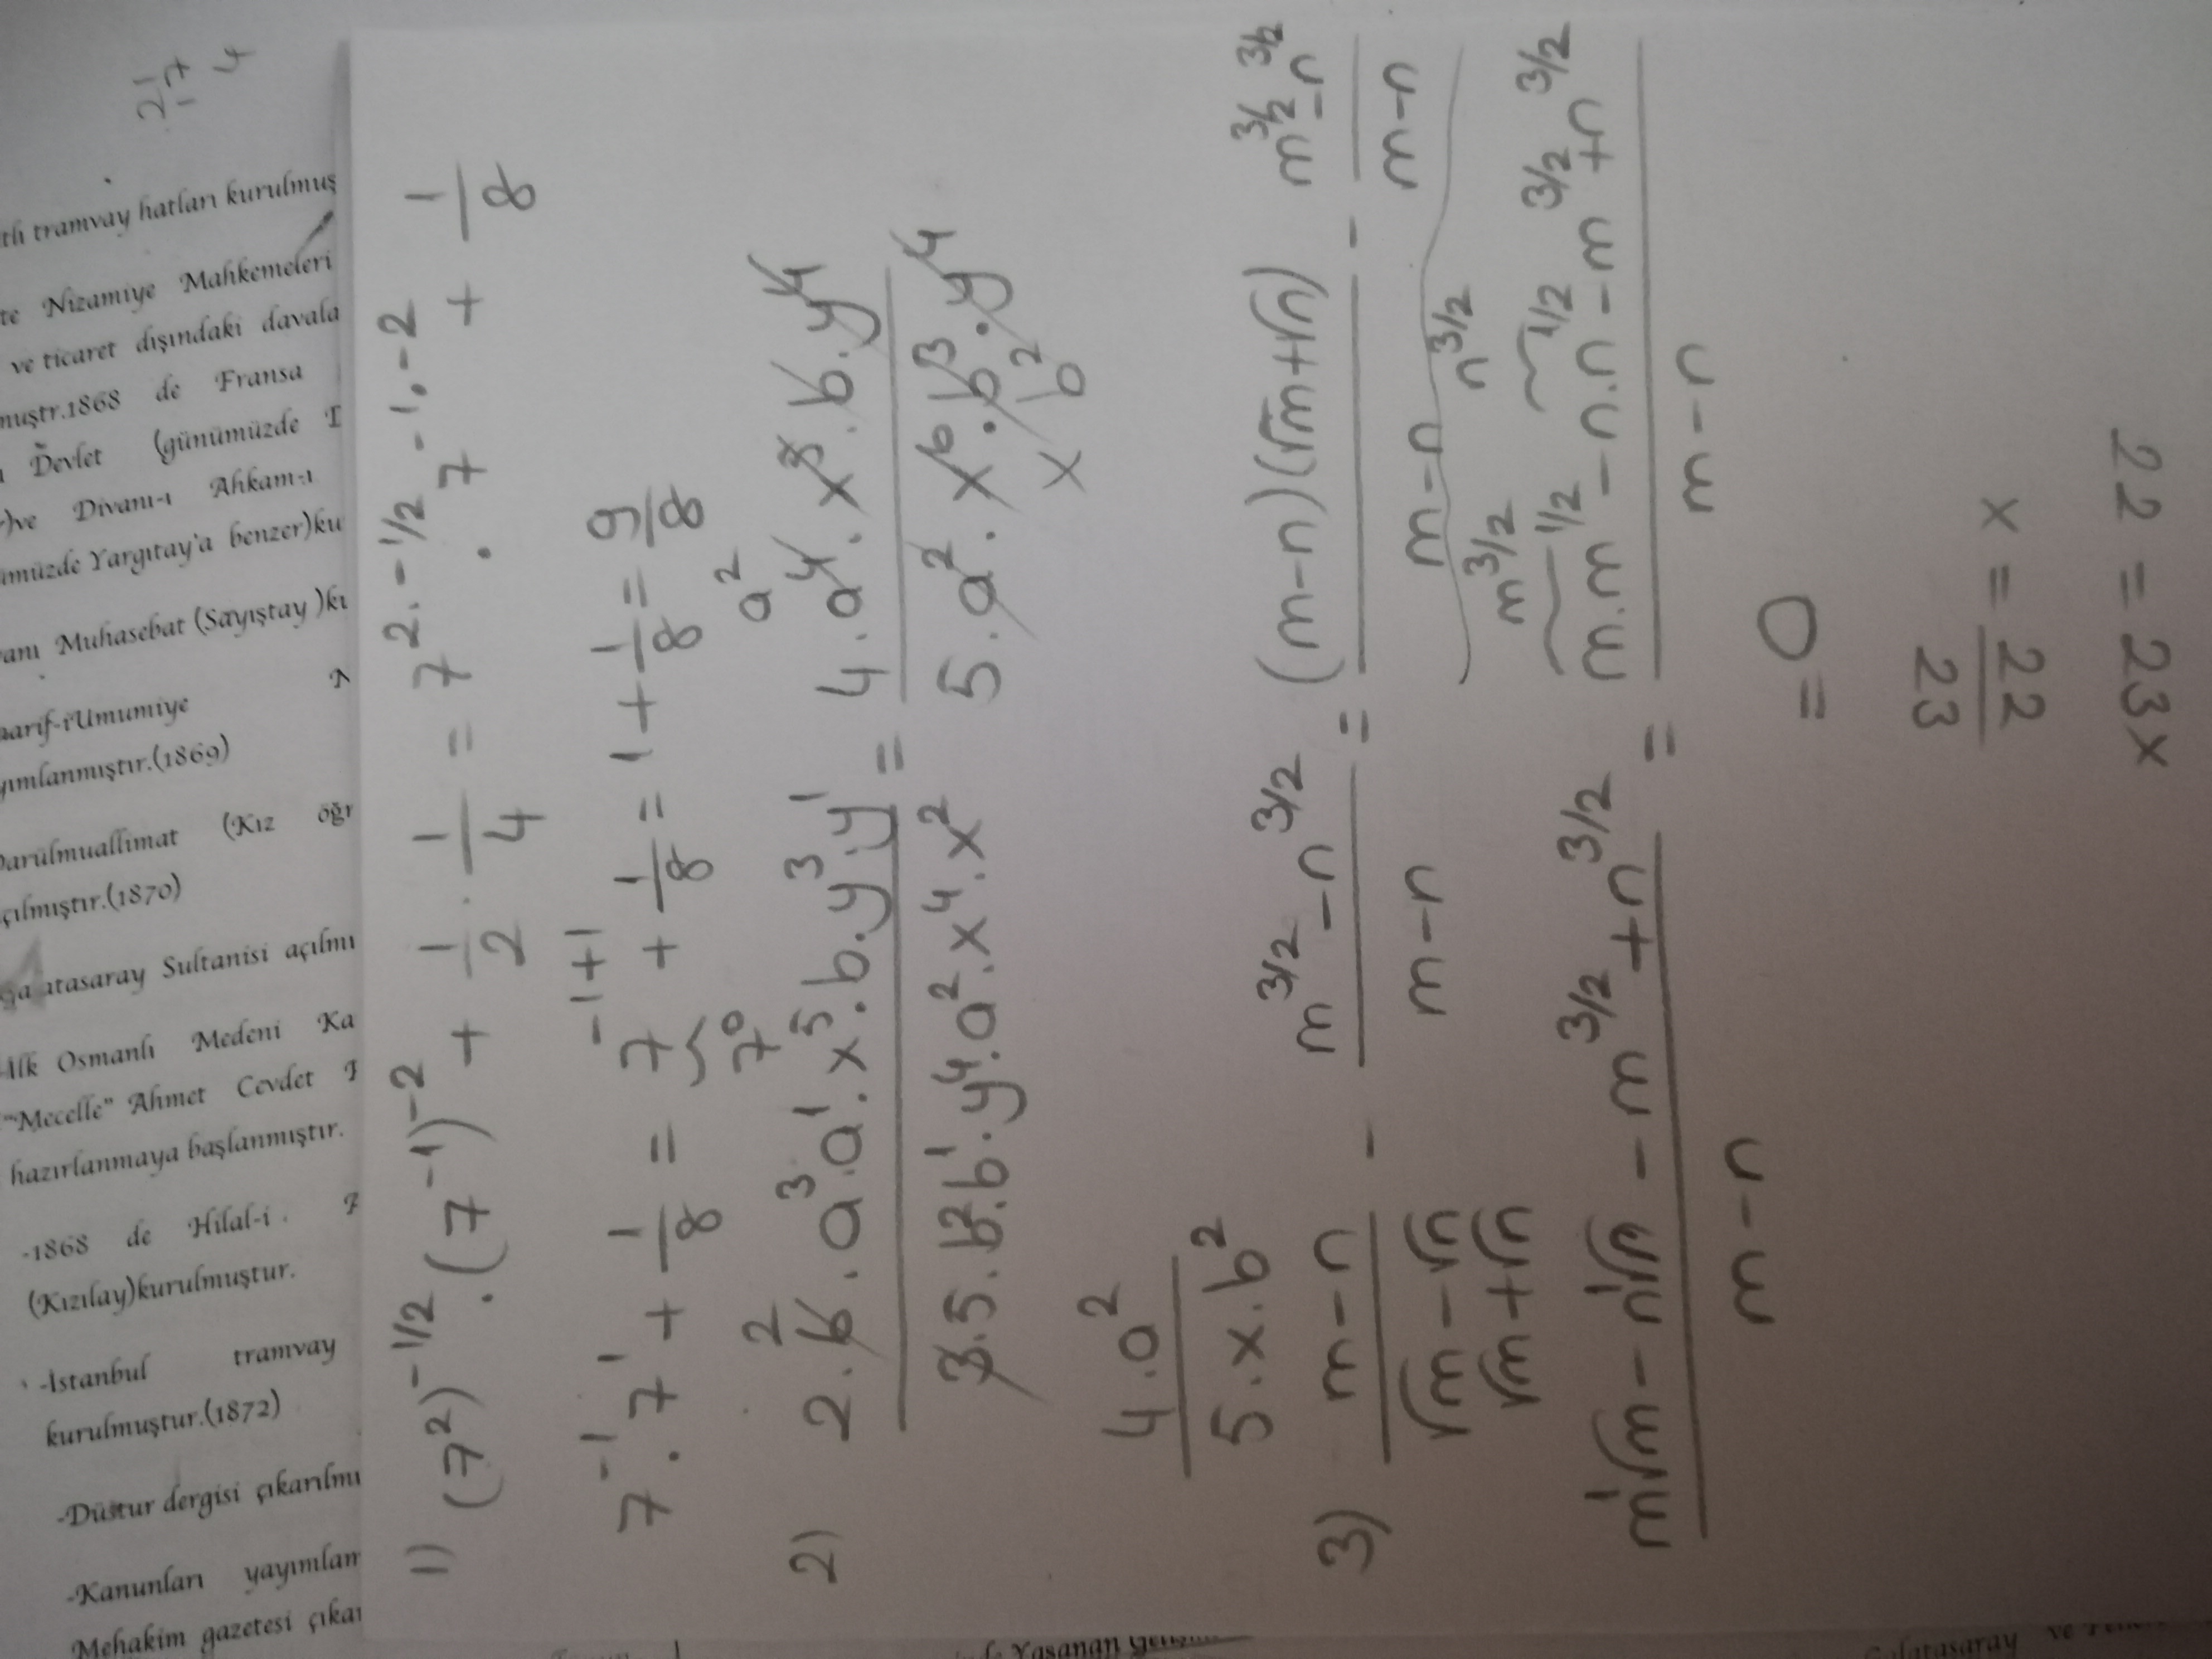 1) (7²)^-1/2 . (7^-1)^-2 + 1/2 . 1/4 = 7^2.-1/2 . 7^-1.-2 + 1/8
7^-1 . 7^1 + 1/8 = 7^-1+1 + 1/8 = 1 + 1/8 = 9/8
7^0
2) 2 . 6 . a^3 . a^1 . x^5 . b . y^3 . y^1 / 3 . 5 . b^2 . b^1 . y^4 . a^2 . x^4 . x^2 = 4 . a^4 . x^5 . b . y^4 / 5 . a^2 . x^6 . b^3 . y^4
2 a^2
x b^2
4 . a^2 / 5 . x . b^2
3) m-n / √m-√n - m^3/2 - n^3/2 / m-n = (m-n)(√m+√n) / m-n - m^3/2 - n^3/2 / m-n
√m+√n
m^3/2 n^3/2
= m.m^1/2 - n.n^1/2 - m^3/2 + n^3/2 / m-n
m^1√m - n^1√n - m^3/2 + n^3/2 / m-n =
= 0
22/23 = x
22 = 23x
tlı tramvay hatları kurulmuş
te Nizamiye Mahkemeleri
ve ticaret dışındaki davala
muştr.1868 de Fransa
Devlet (günümüzde
)ve Divanı-ı Ahkam-ı
ümüzde Yargıtay'a benzer)ku
anı Muhasebat (Sayıştay )kı
aarif-i Umumiye
yımlanmıştır.(1869)
Darülmuallimat (Kız öğr
çılmıştır.(1870)
atasaray Sultanisi açılmı
-İlk Osmanlı Medeni Ka
"Mecelle" Ahmet Cevdet
hazırlanmaya başlanmıştır.
-1868 de Hilal-i
(Kızılay)kurulmuştur.
-İstanbul tramvay
kurulmuştur.(1872)
-Düstur dergisi çıkarılmı
-Kanunları yayımlan
Mehakim gazetesi çıkar